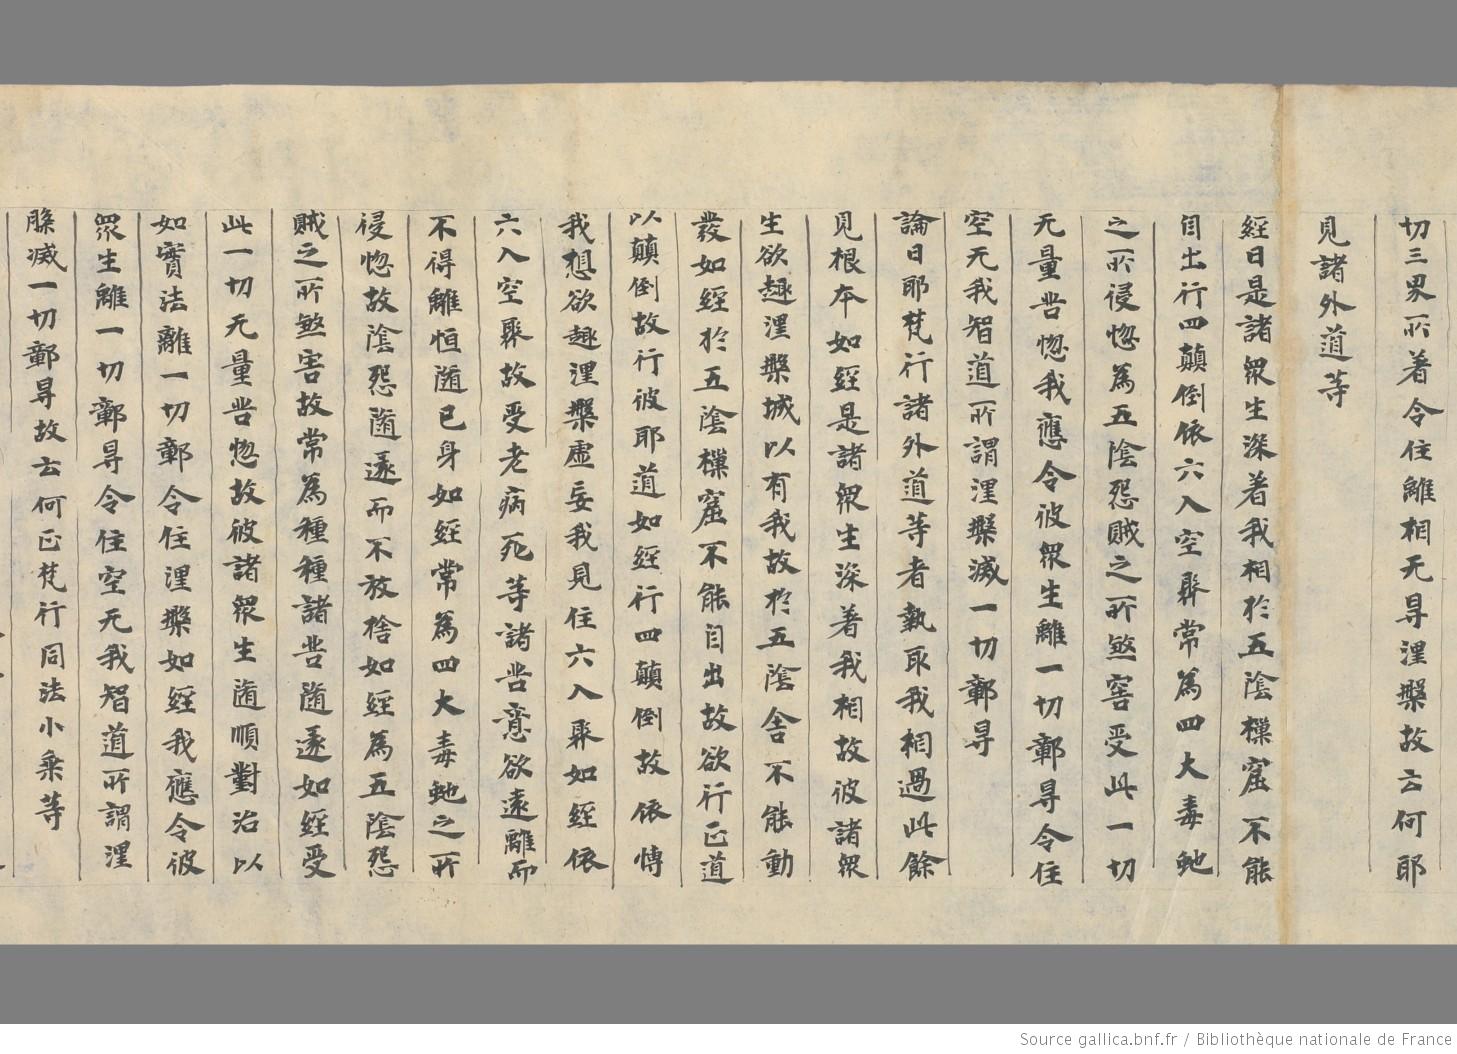 切三界所著令住離相无㝵涅槃故云何耶
見諸外道等
經曰是諸衆生深著我相於五陰樔窟不能
自出行四顛倒依六入空聚常為四大毒虵
之所侵惱為五陰怨賊之所煞害受此一切
无量苦惱我應令彼衆生離一切鄣㝵令住
空无我智道所謂涅槃滅一切鄣㝵
論曰耶梵行諸外道等者執取我相過此餘
見根本如經是諸衆生深著我相故彼諸衆
生欲趣涅槃城以有我故於五陰舍不能動
發如經於五陰樔窟不能自出故欲行正道
以顛倒故行彼耶道如經行四顛倒故依慱
我想欲趣涅槃虛妄我見住六入聚如經依
六入空聚故受老病死等諸苦意欲遠離而
不得離恒随已身如經常為四大毒虵之所
侵惱故陰怨随逐而不放捨如經為五陰怨
賊之所煞害故常為種種諸苦随逐如經受
此一切无量苦惱故彼諸衆生随順對治以
如實法離一切鄣令住涅槃如經我應令彼
衆生離一切鄣㝵令住空无我智道所謂涅
槃滅一切鄣㝵故云何正梵行同法小乗等
Source gallica.bnf.fr / Bibliothèque nationale de France